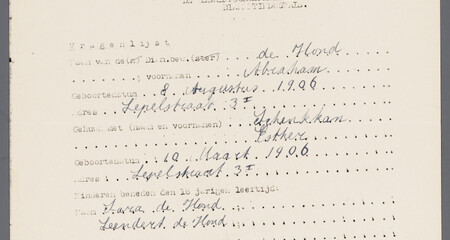 Vragenlijst
Naam van de(n) Dien.oev.(ster) de Hond
" " " voornamen Abraham
Geboortedatum 8 Augustus 1906
Adres Lepelstraat 3 I
Gehuwd met (naam en voornamen) Schenkkan
Esther
Geboortedatum 10 Maart 1906
Adres Lepelstraat 3 I
Kinderen beneden den 16 jarigen leeftijd:
Naam Sara de Hond
Leendert de Hond